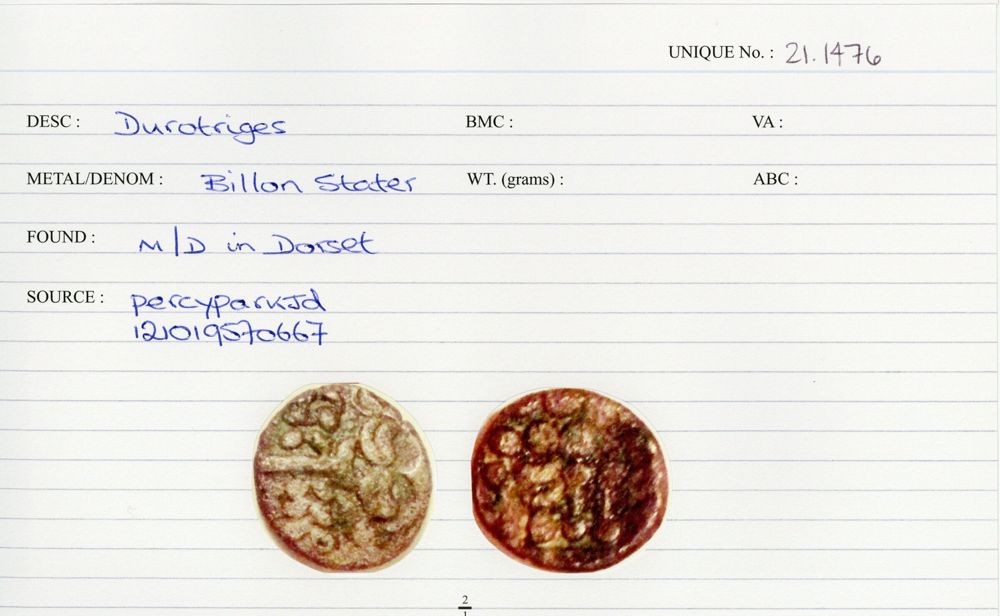 UNIQUE No. : 21.1476
DESC : Durotriges BMC : VA :
METAL/DENOM : Billon Stater WT. (grams) : ABC :
FOUND : M/D in Dorset
SOURCE : percyparkjd
121019570667
2
1